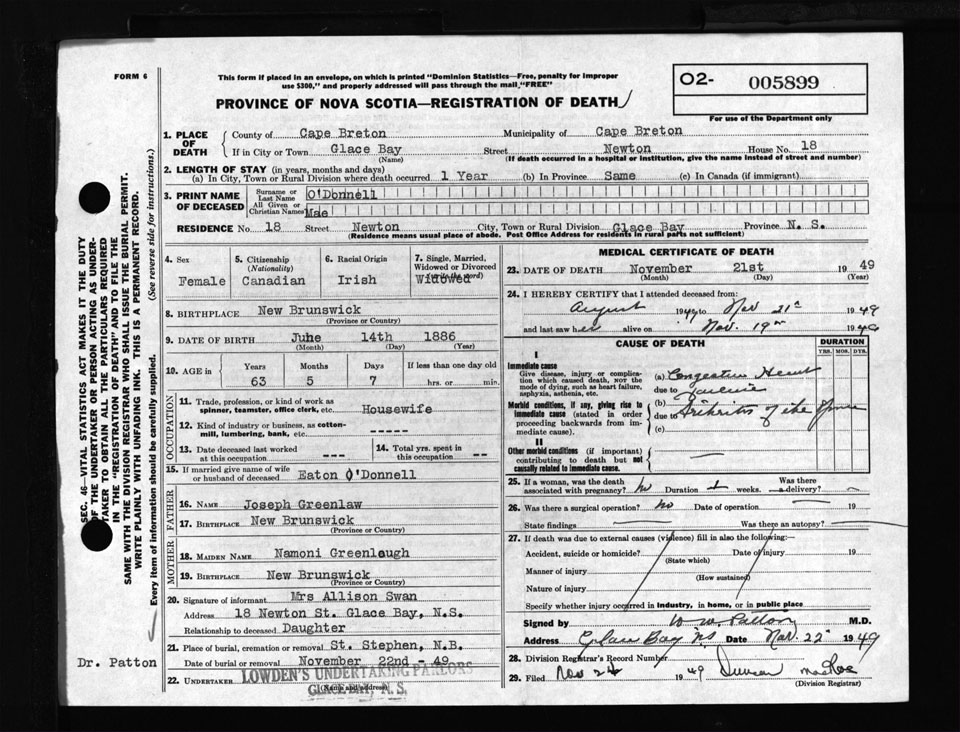 FORM 6
This form if placed in an envelope, on which is printed "Dominion Statistics—Free, penalty for improper
use $300," and properly addressed will pass through the mail, "FREE"
PROVINCE OF NOVA SCOTIA—REGISTRATION OF DEATH
O2- 005899
For use of the Department only
1. PLACE OF DEATH
County of Cape Breton Municipality of Cape Breton
If in City or Town Glace Bay Street Newton House No. 18
(Name) (If death occurred in a hospital or institution, give the name instead of street and number)
2. LENGTH OF STAY (in years, months and days)
(a) In City, Town or Rural Division where death occurred 1 Year (b) In Province Same (c) In Canada (if immigrant)
3. PRINT NAME OF DECEASED
Surname or Last Name O'Donnell
All Given or Christian Names Mae
RESIDENCE No. 18 Street Newton City, Town or Rural Division Glace Bay Province N. S.
(Residence means usual place of abode. Post Office Address for residents in rural parts not sufficient)
4. Sex
Female
5. Citizenship
(Nationality)
Canadian
6. Racial Origin
Irish
7. Single, Married,
Widowed or Divorced
(write the word)
Widowed
8. BIRTHPLACE New Brunswick
(Province or Country)
9. DATE OF BIRTH June 14th 1886
(Month) (Day) (Year)
10. AGE in
Years Months Days If less than one day old
63 5 7 hrs. or min.
OCCUPATION
11. Trade, profession, or kind of work as
spinner, teamster, office clerk, etc. Housewife
12. Kind of industry or business, as cotton-
mill, lumbering, bank, etc. -----
13. Date deceased last worked
at this occupation ----
14. Total yrs. spent in
this occupation --
15. If married give name of wife
or husband of deceased Eaton O'Donnell
FATHER
16. NAME Joseph Greenlaw
17. BIRTHPLACE New Brunswick
(Province or Country)
MOTHER
18. MAIDEN NAME Namoni Greenlaugh
19. BIRTHPLACE New Brunswick
(Province or Country)
20. Signature of informant Mrs Allison Swan
Address 18 Newton St. Glace Bay, N.S.
Relationship to deceased Daughter
21. Place of burial, cremation or removal St. Stephen, N.B.
Date of burial or removal November 22nd - 49
22. UNDERTAKER LOWDEN'S UNDERTAKING PARLORS
(Name and address)
GLACE BAY, N. S.
MEDICAL CERTIFICATE OF DEATH
23. DATE OF DEATH November 21st 1949
(Month) (Day) (Year)
24. I HEREBY CERTIFY that I attended deceased from:
August 1949 to Nov 21st 1949
and last saw her alive on Nov. 19th 1949
CAUSE OF DEATH
DURATION
YRS. MOS. DYS.
I
Immediate cause
Give disease, injury or complica-
tion which caused death, not the
mode of dying, such as heart failure,
asphyxia, asthenia, etc.
(a) Congestive Heart
due to
Morbid conditions, if any, giving rise to
immediate cause (stated in order
proceeding backwards from im-
mediate cause).
(b)
due to Arthritis of the Spine
(c)
II
Other morbid conditions (if important)
contributing to death but not
causally related to immediate cause.
25. If a woman, was the death
associated with pregnancy? No Duration weeks. Was there
a delivery?
26. Was there a surgical operation? No Date of operation 19
State findings Was there an autopsy?
27. If death was due to external causes (violence) fill in also the following:—
Accident, suicide or homicide? Date of injury 19
(State which)
Manner of injury
(How sustained)
Nature of injury
Specify whether injury occurred in industry, in home, or in public place
Signed by W. W. Patton M.D.
Address Glace Bay NS Date Nov. 22nd 1949
28. Division Registrar's Record Number
29. Filed Nov 24 1949 Duncan
(Division Registrar)
SEC. 46—VITAL STATISTICS ACT MAKES IT THE DUTY
OF THE UNDERTAKER OR PERSON ACTING AS UNDER-
TAKER TO OBTAIN ALL THE PARTICULARS REQUIRED
IN THE "REGISTRATION OF DEATH" AND TO FILE THE
SAME WITH THE DIVISION REGISTRAR WHO SHALL ISSUE THE BURIAL PERMIT.
WRITE PLAINLY WITH UNFADING INK. THIS IS A PERMANENT RECORD.
Every item of information should be carefully supplied. (See reverse side for instructions.)
Dr. Patton